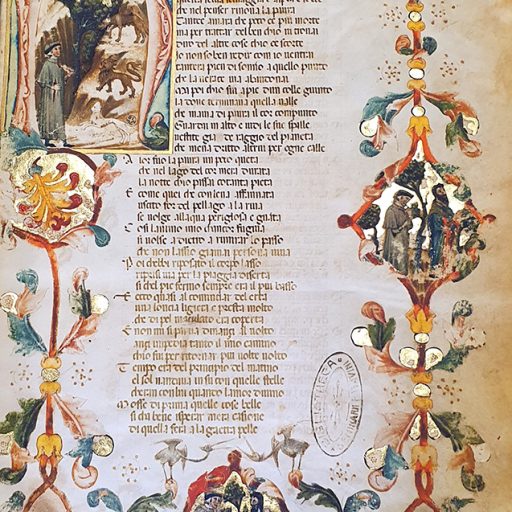 che nel pensier rinoua la paura
Tante amara che poco e piu morte
ma per tractar del ben chio ui trouai
diro del altre cose chio scorte
Io non so ben redir comio uentrai
tantera pien di sonno a quello punto
che la uerace uia abandonai
Ma poi chio fui apie dun colle giunto
la doue terminaua quella ualle
che mauia di paura il cor compunto
Guardai in alto e uidi le sue spalle
uestite gia de raggi del pianeta
che mena dricto altrui per ogne calle
Allor fu la paura un poco queta
che nel lago del cor mera durata
la nocte chio passai cotanta pieta
E come quei che con lena affannata
uscito for del pellago a la riua
se uolge allaqua perigliosa e guata
Cosi lanimo mio chancor fugiua
si uolse a dietro a rimirar lo passo
che non lasso giamai persona uiua
Poi chebbi riposato il corpo lasso
ripresi uia per la piaggia diserta
si chel pie fermo sempre era il piu basso
Et ecco quasi al cominciar del erta
una lonza ligiera e presta molto
che di pel maculato era coperta
E non mi si partia dinanzi al uolto
anzi impedia tanto il mio camino
chio fui per ritornar piu uolte uolto
Tempo era del principio del matino
el sol montaua in su con quelle stelle
cheran con lui quando lamor diuino
Mosse di prima quelle cose belle
si cha bene sperar mera casione
di quella fera a la gaetta pelle